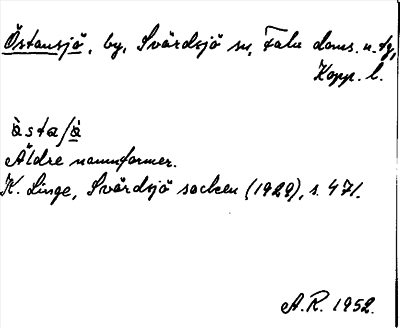 Östansjö, by, Svärdsjö sn, Falu doms. n. tg,
Kopp. l.
Äldre namnformer.
K. Linge, Svärdsjö socken (1929), s. 471.
A.R. 1952.